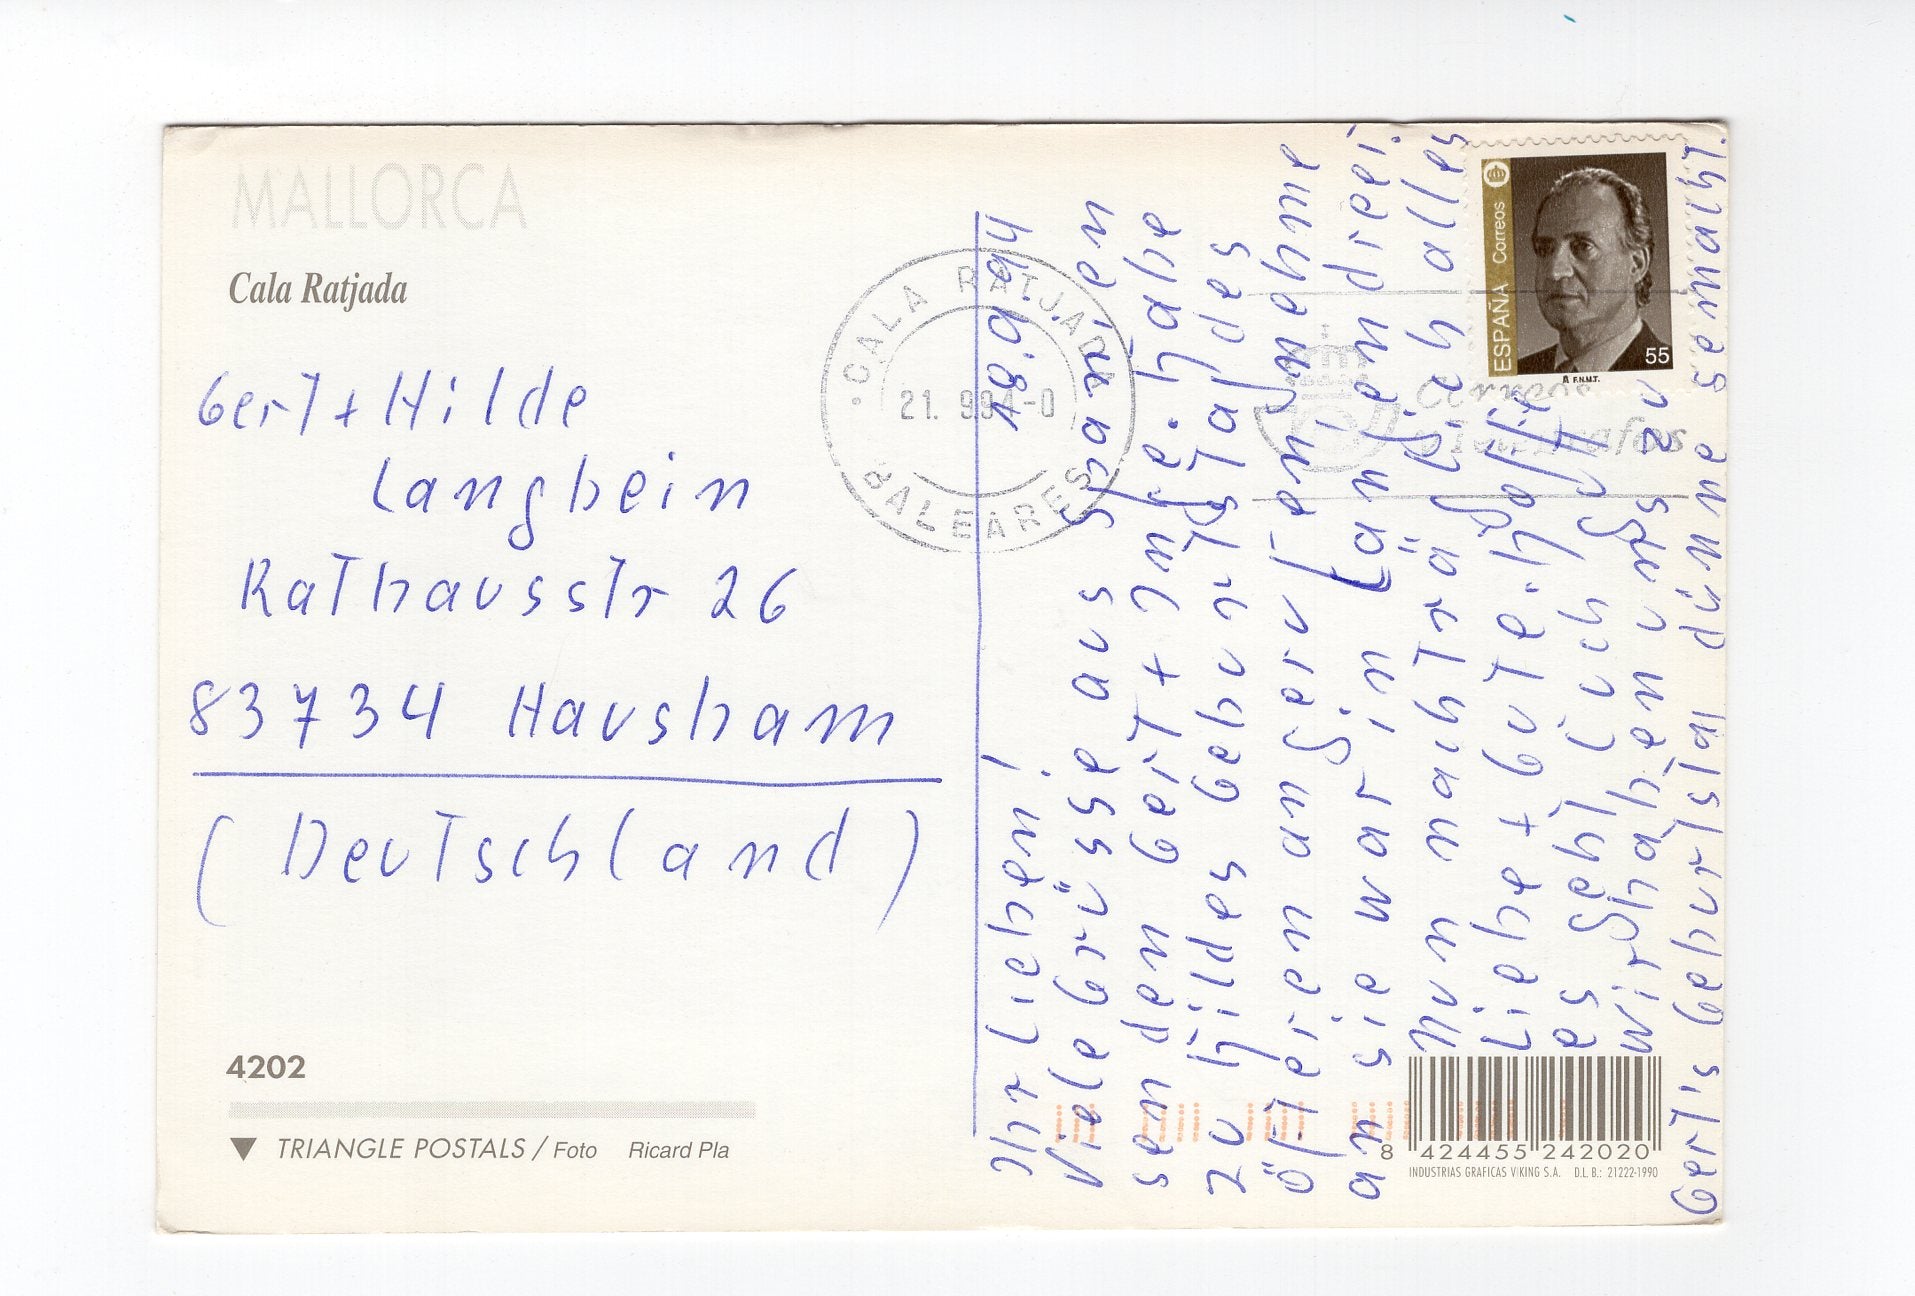 MALLORCA
Cala Ratjada
Gert + Hilde
Langbein
Rathausstr 26
83734 Hausham
(Deutschland)
4202
TRIANGLE POSTALS / Foto Ricard Pla
CALA RATJADA
21. 9 94-0
BALEARES
ESPAÑA Correos
55
F.N.M.T.
18.9.94
Ihr Lieben!
Viele Grüsse aus Spanien
senden Gert + Inke. habe
zu Hildes Geburtstag des
öfteren angeru Fen, nehme
an sie war in Länjendreei.
nun nachträglich alles
Liebe + Gute. hoffe
es geht Euch gut
wir haben uns zu
Gert's Geburtstag dünne gemacht.
8 424455 242020
INDUSTRIAS GRAFICAS VIKING S.A. D.L.B.: 21222-1990